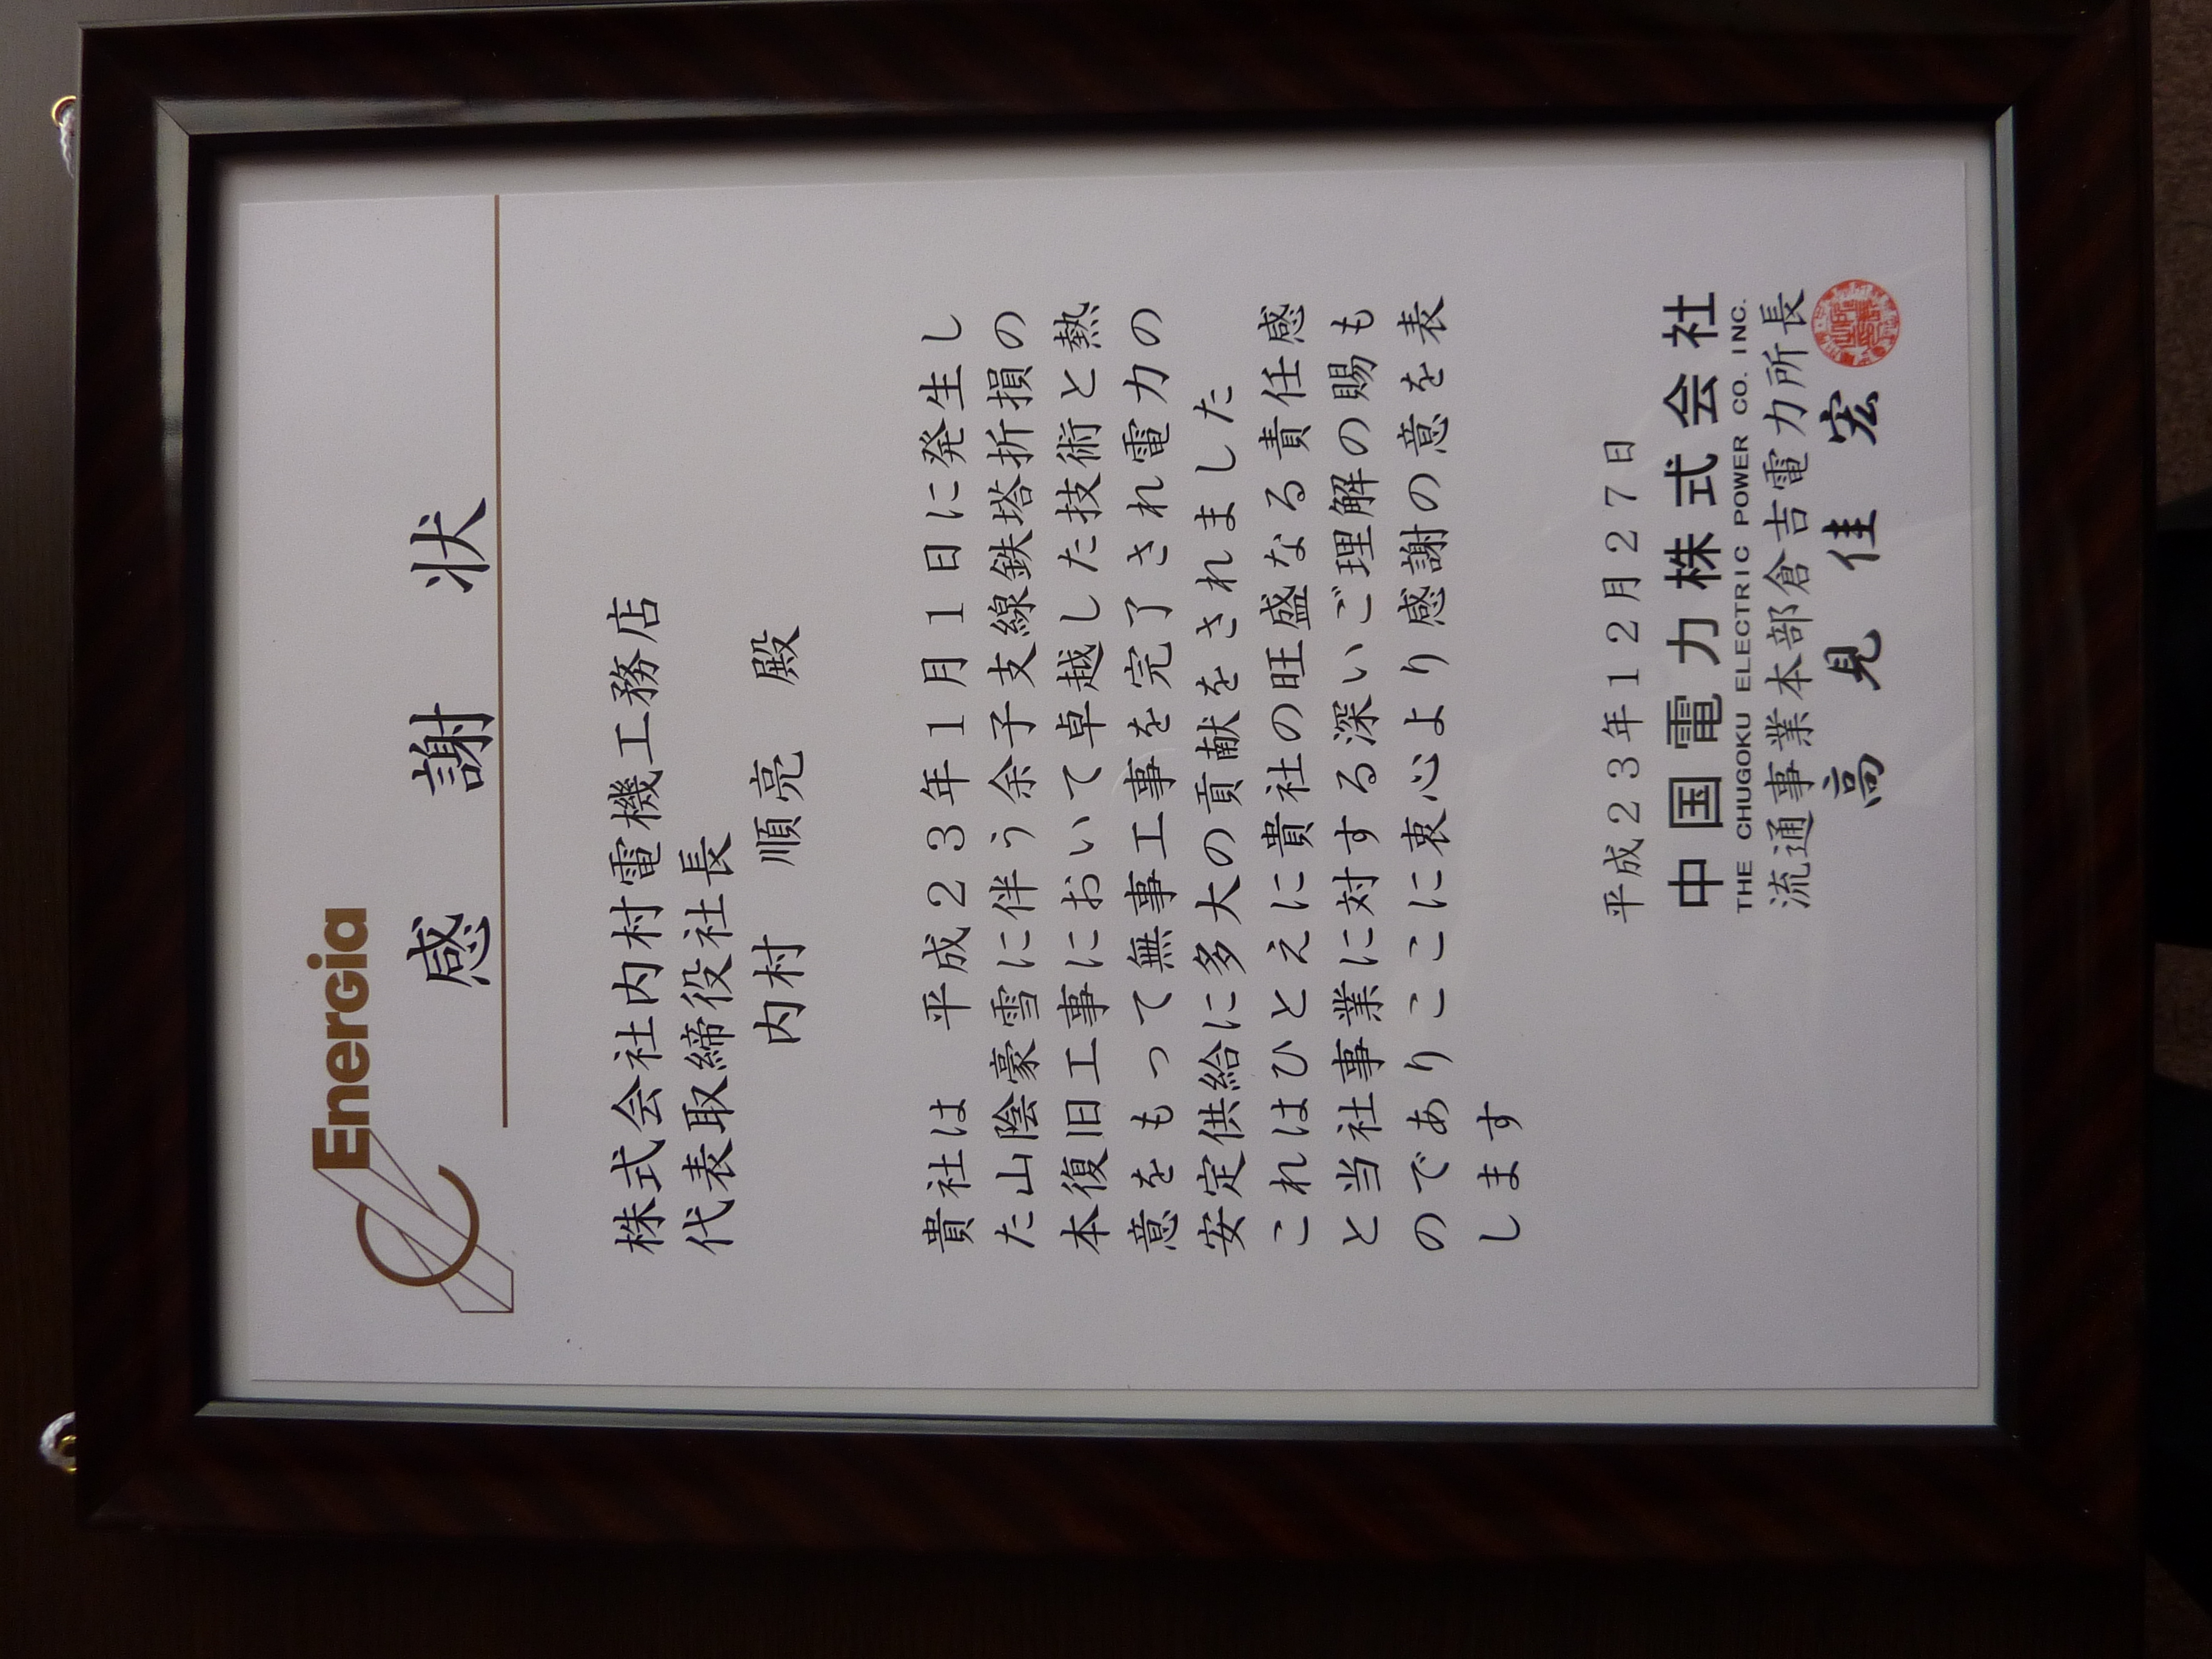 Energia
感謝状
株式会社内村電機工務店
代表取締役社長
内村 順亮 殿
貴社は 平成23年1月1日に発生し
た山陰豪雪に伴う余子支線鉄塔折損の
本復旧工事において卓越した技術と熱
意をもって無事工事を完了され電力の
安定供給に多大の貢献をされました
これはひとえに貴社の旺盛なる責任感
と当社事業に対する深いご理解の賜も
のでありここに衷心より感謝の意を表
します
平成23年12月27日
中国電力株式会社
THE CHUGOKU ELECTRIC POWER CO. INC.
流通事業本部倉吉電力所長
高見佳宏